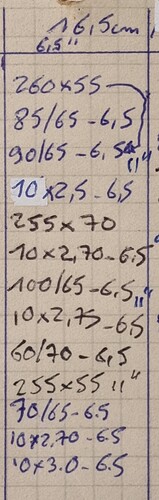 16,5cm
6,5"
260x55
85/65-6,5
90/65-6,5"
10x2,5-6,5
255x70
10x2,70-6.5
100/65-6,5"
10x2,75-6,5
60/70-6,5
255x55 11"
70/65-6.5
10x2,70-6.5
10x3.0-6.5